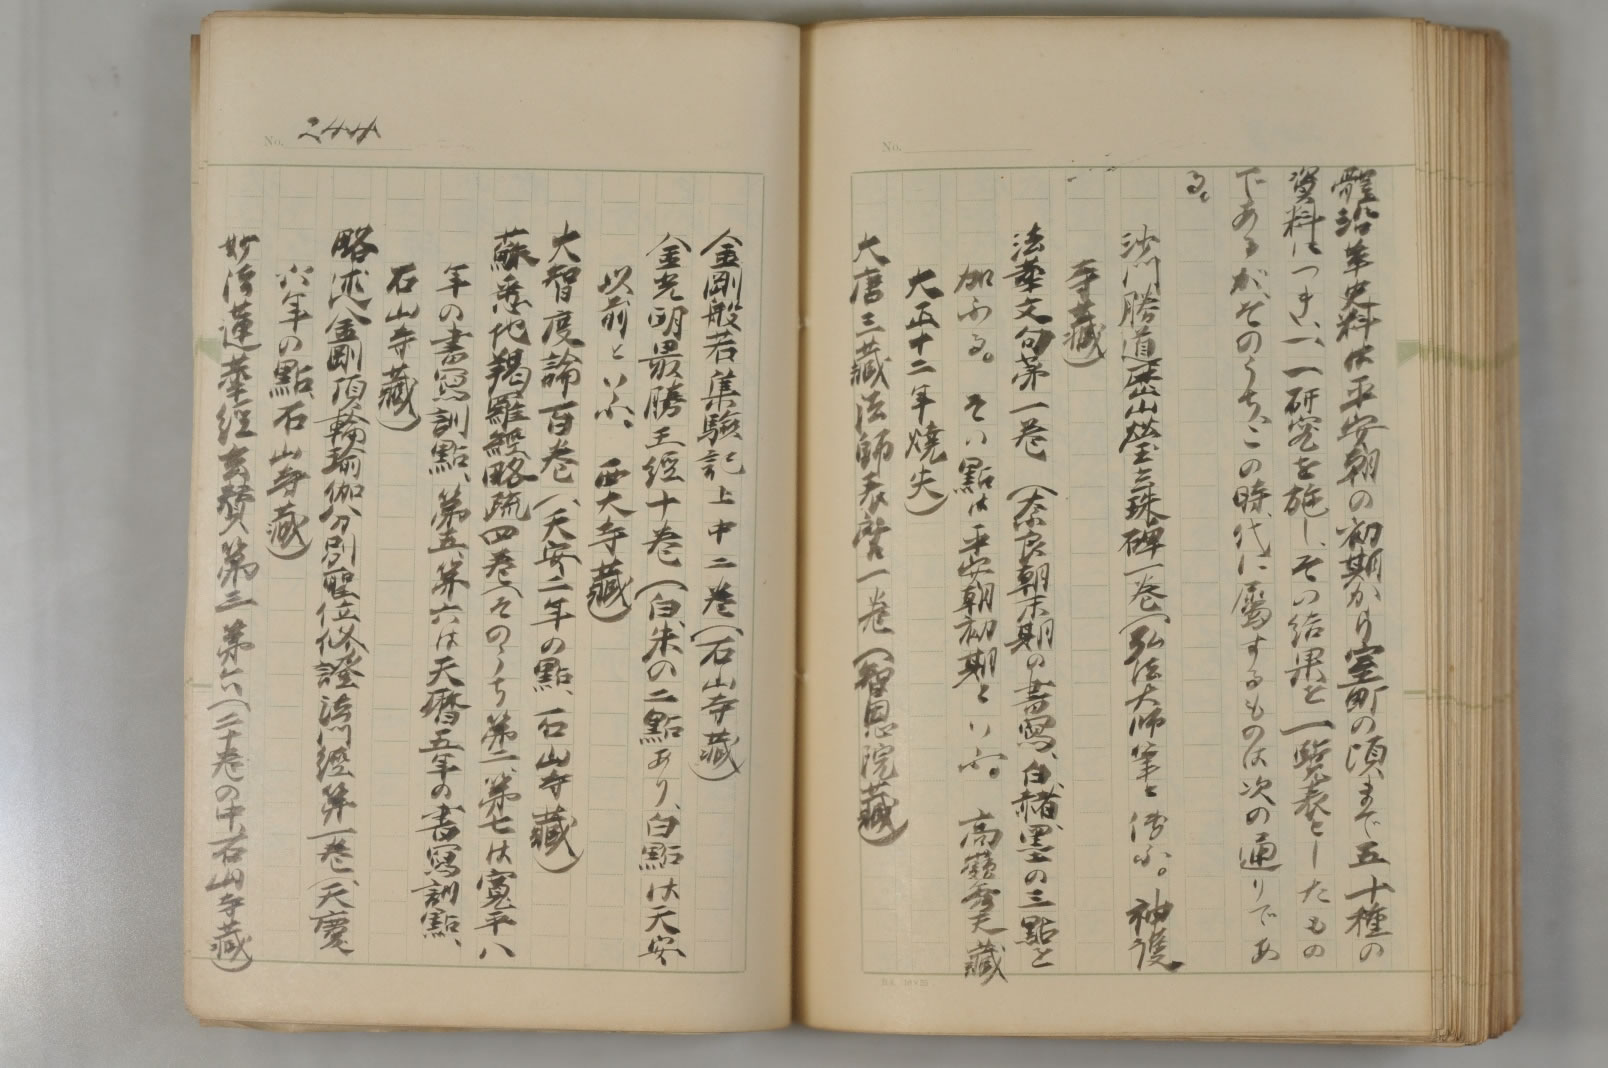 體沿革史料は平安朝の初期から室町の頃まで五十種の
資料につき、一一研究を施し、その結果を一覽表としたもの
であるが、そのうち、この時代に屬するものは次の通りであ
る。
沙門勝道歴山瑩玄珠碑一卷(弘法大師筆と傳ふ。神護
寺藏)
法華文句第一卷(奈良朝末期の書寫、白赭墨の三點を
加ふる。その點は平安朝初期といふ。高藏
大正十二年燒失)
大唐三藏法師表啓一卷(智恩院藏)
No. 244
金剛般若集驗記上中二卷(石山寺藏)
金光明最勝王經十卷(白朱の二點あり、白點は天安
以前といふ、西大寺藏)
大智度論百卷(天安二年の點、石山寺藏)
蘇悉地羯羅經略疏四卷(そのうち第二、第七は寬平八
年の書寫訓點、第五、第六は天曆五年の書寫訓點、
石山寺藏)
略述金剛頂輪瑜伽分別聖位修證法門經第一卷(天慶
六年の點、石山寺藏)
妙法蓮華經玄贊第三第六(二十卷の中、石山寺藏)
No.